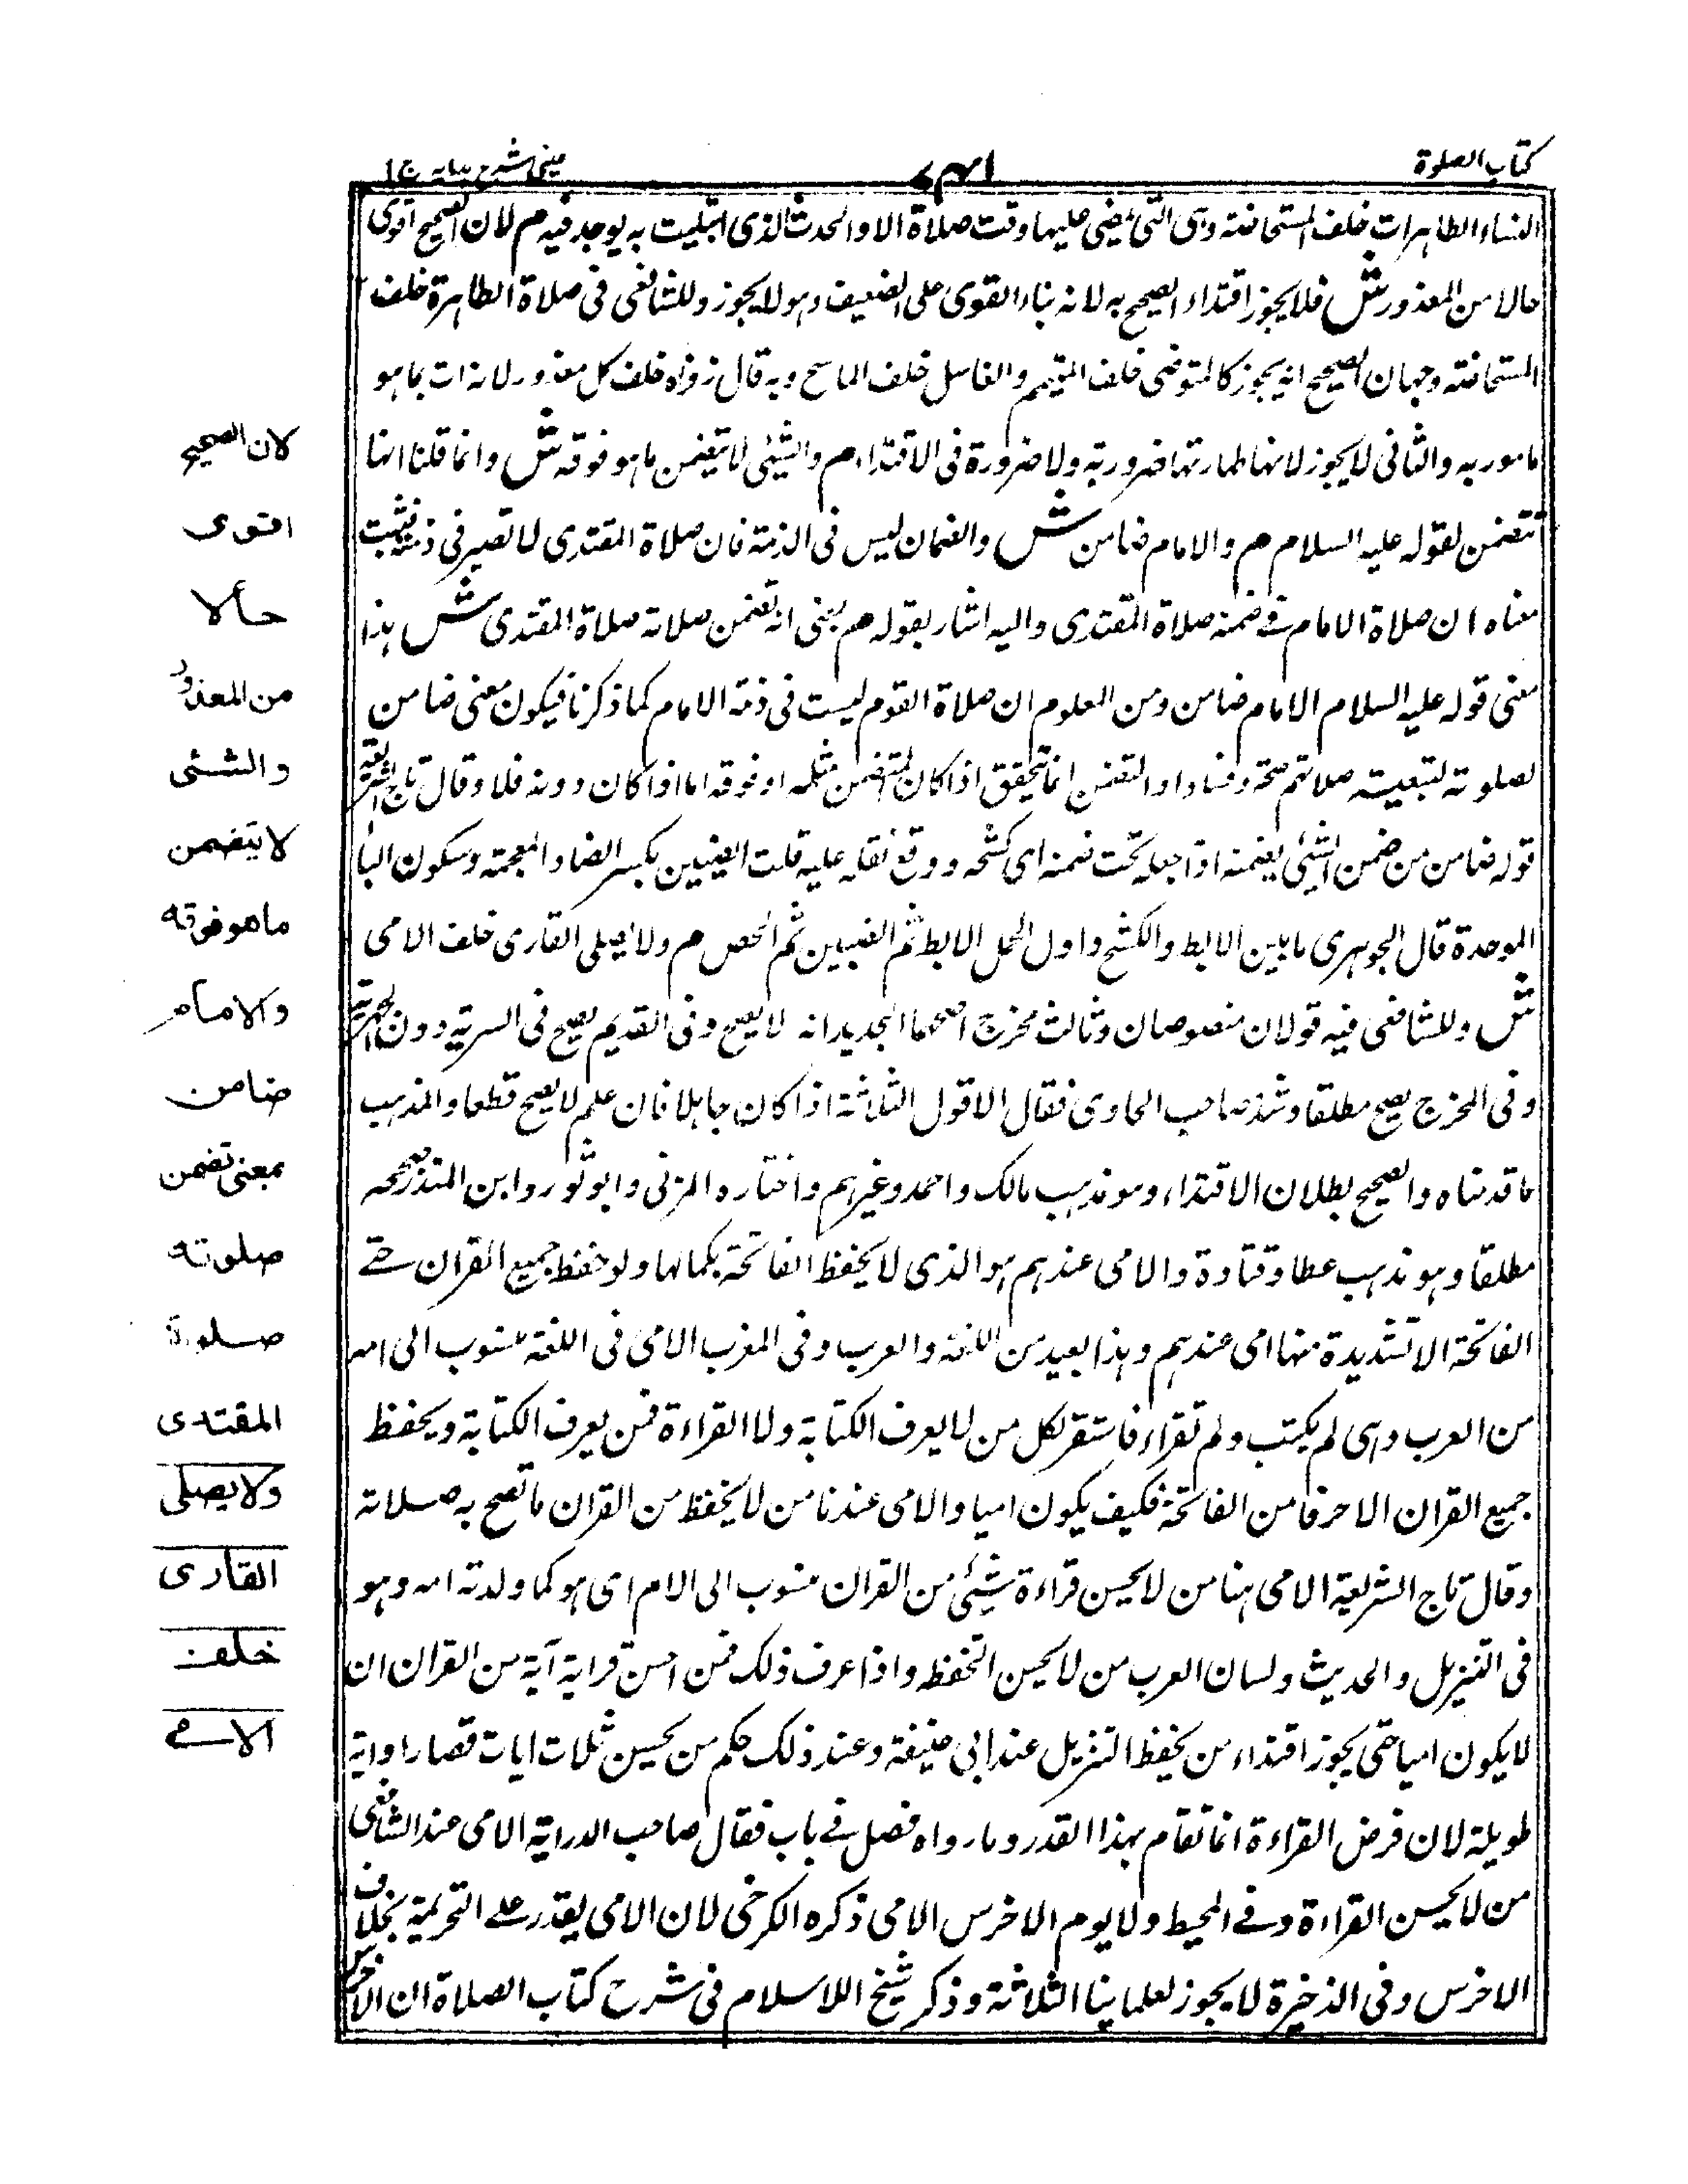 كتاب الصلوة
٧٤١
عينى شرح هدايه ج ١
النساء الطاهرات خلف المستحاضة وهى التى يمضى عليها وقت صلاة الا والحدث الذى ابتليت به يوجد فيه م لان الصحيح اقوى
حالا من المعذور ش فلا يجوز اقتداء الصحيح به لانه بناء القوى على الضعيف وهو لا يجوز وللشافعى فى صلاة الطاهرة خلف
المستحاضة وجهان الصحيح انه يجوز كالمتوضى خلف المتيمم والغاسل خلف الماسح وبه قال زفراه خلف كل معذور لانه ات بما هو
مامور به والثانى لا يجوز لانها طهارتها ضرورية ولا ضرورة فى الاقتداء م والشيئى لا يتضمن ما هو فوقه ش وانما قلنا انها
تتضمن لقوله عليه السلام م والامام ضامن ش والضمان ليس فى الذمة فان صلاة المقتدى لا تصير فى ذمته
معناه ان صلاة الامام فى ضمنه صلاة المقتدى واليه اشار بقوله م بمعنى انه تضمن صلاته صلاة المقتدى ش هذا
معنى قوله عليه السلام الامام ضامن ومن المعلوم ان صلاة القوم ليست فى ذمة الامام كما ذكرنا فيكون معنى ضامن
لصلوته لتبعية صلاتهم صحة وفسادا والتضمن انما يتحقق اذا كان المتضمن مثله او فوقه اما اذا كان دونه فلا وقال تاج الشريعة
قوله ضامن من ضمن الشيئى يضمنه اذا جعله تحت ضمنه اى كشحه ووقع ثقله عليه قلت الضبين بكسر الضاد المعجمة وسكون البا
الموحدة قال الجوهرى ما بين الابط والكشح واول الحمل الابط ثم الضبين ثم الحص م ولا يصلى القارى خلف الامى
ش وللشافعى فيه قولان منصوصان وثالث مخرج اصحها الجديد انه لا يصح وفى القديم يصح فى السرية دون الجهرية
وفى المخرج يصح مطلقا وشذ صاحب الحاوى فقال الاقول الثلاثة اذا كان جاهلا فان علم لا يصح قطعا والمذهب
ما قدمناه والصحيح بطلان الاقتداء وهو مذهب مالك واحمد وغيرهم واختاره المزنى وابو ثور وابن المنذر صححه
مطلقا وهو مذهب عطا وقتادة والامى عندهم هو الذى لا يحفظ الفاتحة بكمالها ولو حفظ جميع القران حتى
الفاتحة الا تشديدة منها امى عندهم وهذا بعيد من اللغة والعرب وفى المغرب الامى فى اللغة منسوب الى امه
من العرب وهى لم يكتب ولم تقراء فاستقر لكل من لا يعرف الكتابة ولا القراءة فمن يعرف الكتابة ويحفظ
جميع القران الا حرفا من الفاتحة فكيف يكون اميا والامى عندنا من لا يحفظ من القران ما تصح به صلاته
وقال تاج الشريعة الامى هنا من لا يحسن قراءة شيئى من القران منسوب الى الام اى هو كما ولدته امه وهو
فى التنزيل والحديث ولسان العرب من لا يحسن الحفظ واذا عرف ذلك فمن احسن قراية آية من القران ان
لا يكون اميا حتى يجوز اقتداء من يحفظ التنزيل عند ابى حنيفة وعند ذلك حكم من يحسن ثلاث ايات قصار او اية
طويلة لان فرض القراءة انما تقام بهذا القدر وما رواه فصل فى باب فقال صاحب الدراية الامى عند الشافعى
من لا يحسن القراءة وفى المحيط ولا يوم الاخرس الامى ذكره الكرخى لان الامى يقدر على التحريمة بخلاف
الاخرس وفى الذخيرة لا يجوز لعلماينا الثلاثة وذكر شيخ اللاسلام فى شرح كتاب الصلاة ان الاخرس
لان الصحيح
اقوى
حالا
من المعذور
والشئى
لا يتضمن
ما هو فوقه
والامام
ضامن
بمعنى تضمن
صلوته
صلوة
المقتدى
ولا يصلى
القارى
خلف
الامى